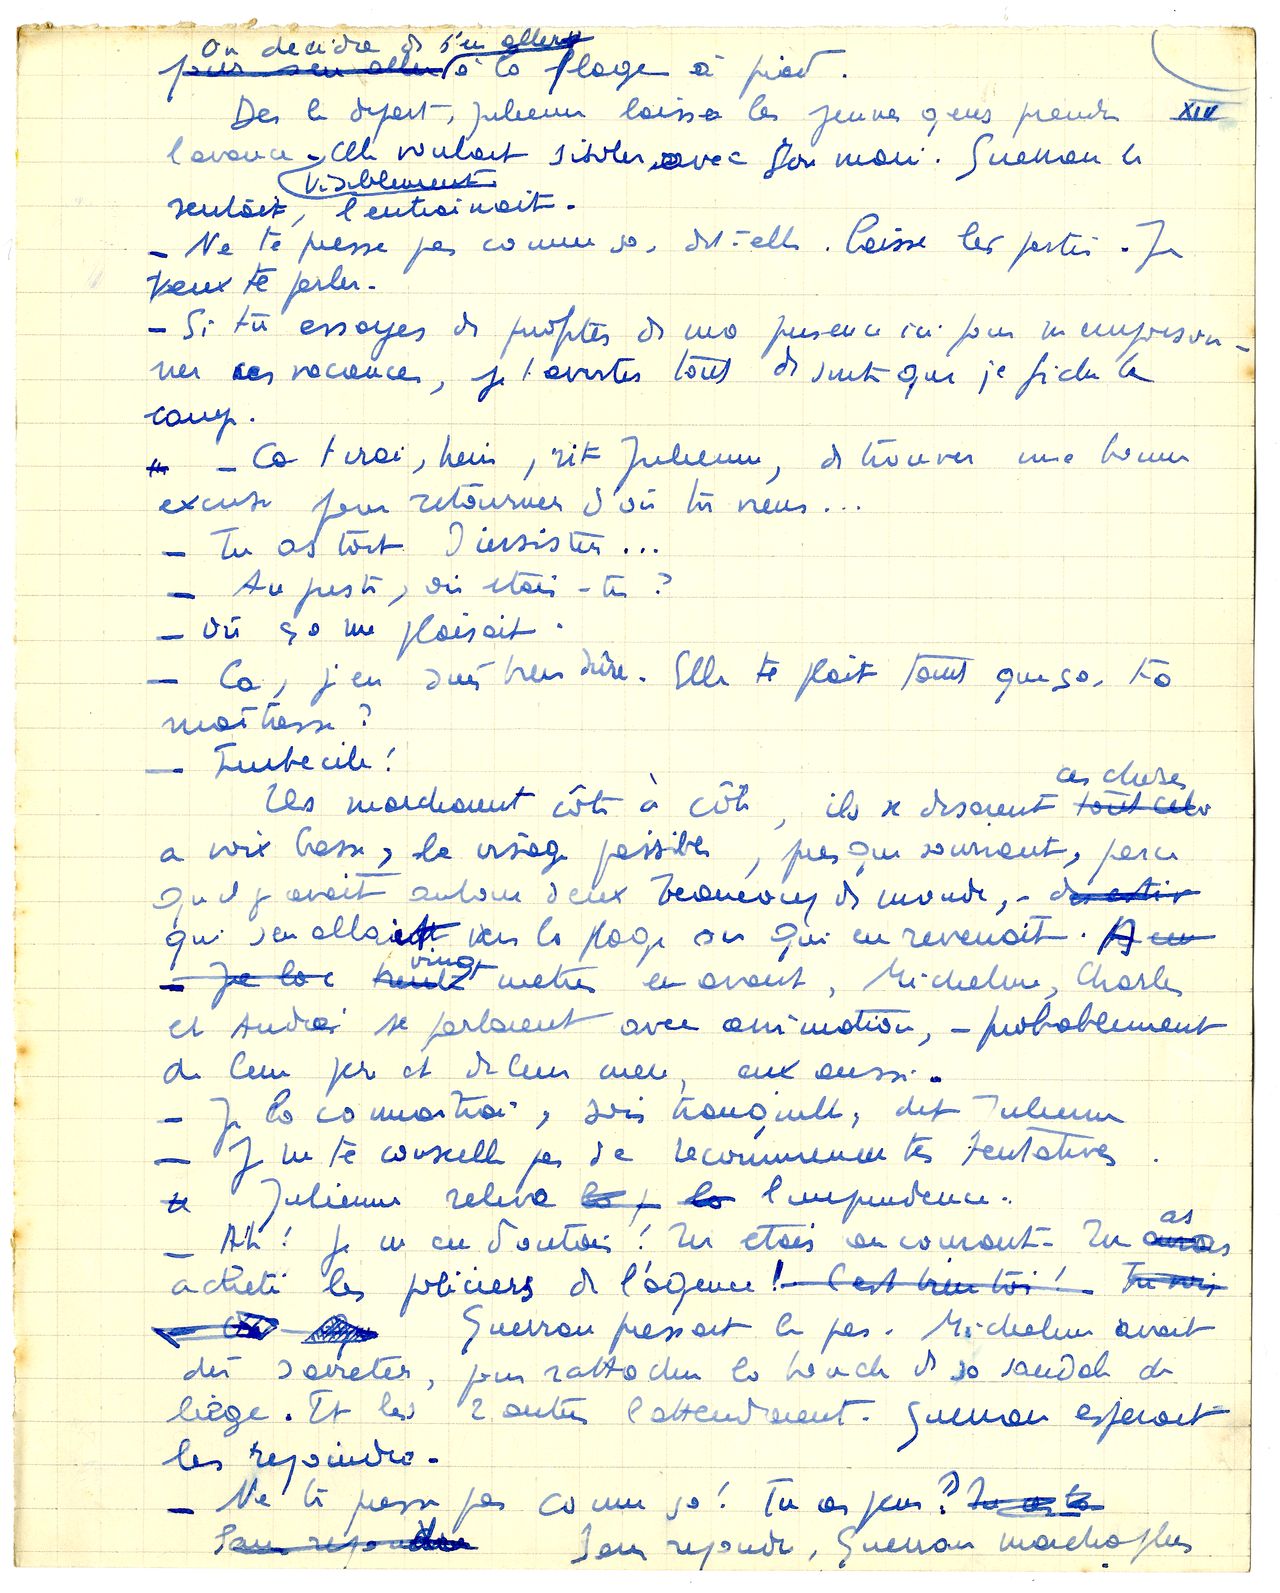 On décidra de s'en aller
pour s'en aller à la plage à pied.
Dès le départ, Julienne laissa les jeunes gens prendre XIV
l'avance. Elle voulait s'isoler avec son mari. Guerran le
visiblement
sentait, l'entrainait.
– Ne te presse pas comme ça, dit-elle. Laisse les partir. Je
veux te parler.
– Si tu essayes de profiter de ma présence ici pour m'empoison-
ner ces vacances, je t'avertes tout de suite que je fiche le
camp.
– Ca t'irai, hein, rit Julienne, de trouver une bonne
excuse pour retourner d'où tu viens...
– Tu as tort d'insister...
– Au juste, où étais-tu ?
– Où ça me plaisait.
– Ca, j'en suis bien sûre. Elle te plait tant que ça, ta
maîtresse ?
– Imbécile !
ces choses
Ils marchaient côte à côte, ils se disaient tout cela
a voix basse, le visage paisible, presque souriant, parce
qu'il y avait autour d'eux beaucoup de monde, – des estiv
qui s'en allait vers la plage ou qui en revenait. A
vingt
– Je la c metres en avant, Micheline, Charles
et André se parlaient avec animation, – probablement
de leur père et de leur mère, eux aussi.
– Je la connaitrai, sois tranquille, dit Julienne
– Je ne te conseille pas de recommencer tes tentatives.
Julienne releva la la l'imprudence.
as
– Ah ! je m'en doutais ! Tu étais au courant – Tu auras
acheté les policiers de l'agence ! – C'est bien toi ! – Tu vois
Guerran pressait le pas. Micheline avait
dû s'arrêter, pour rattacher la boucle de sa sandale de
liège. Et les 2 autres l'attendaient. Guerran espérait
les rejoindre.
– Ne te presse pas comme ça ! Tu as peur ? Tu as
Sans répondre Sans repondre, Guerran marcha plus